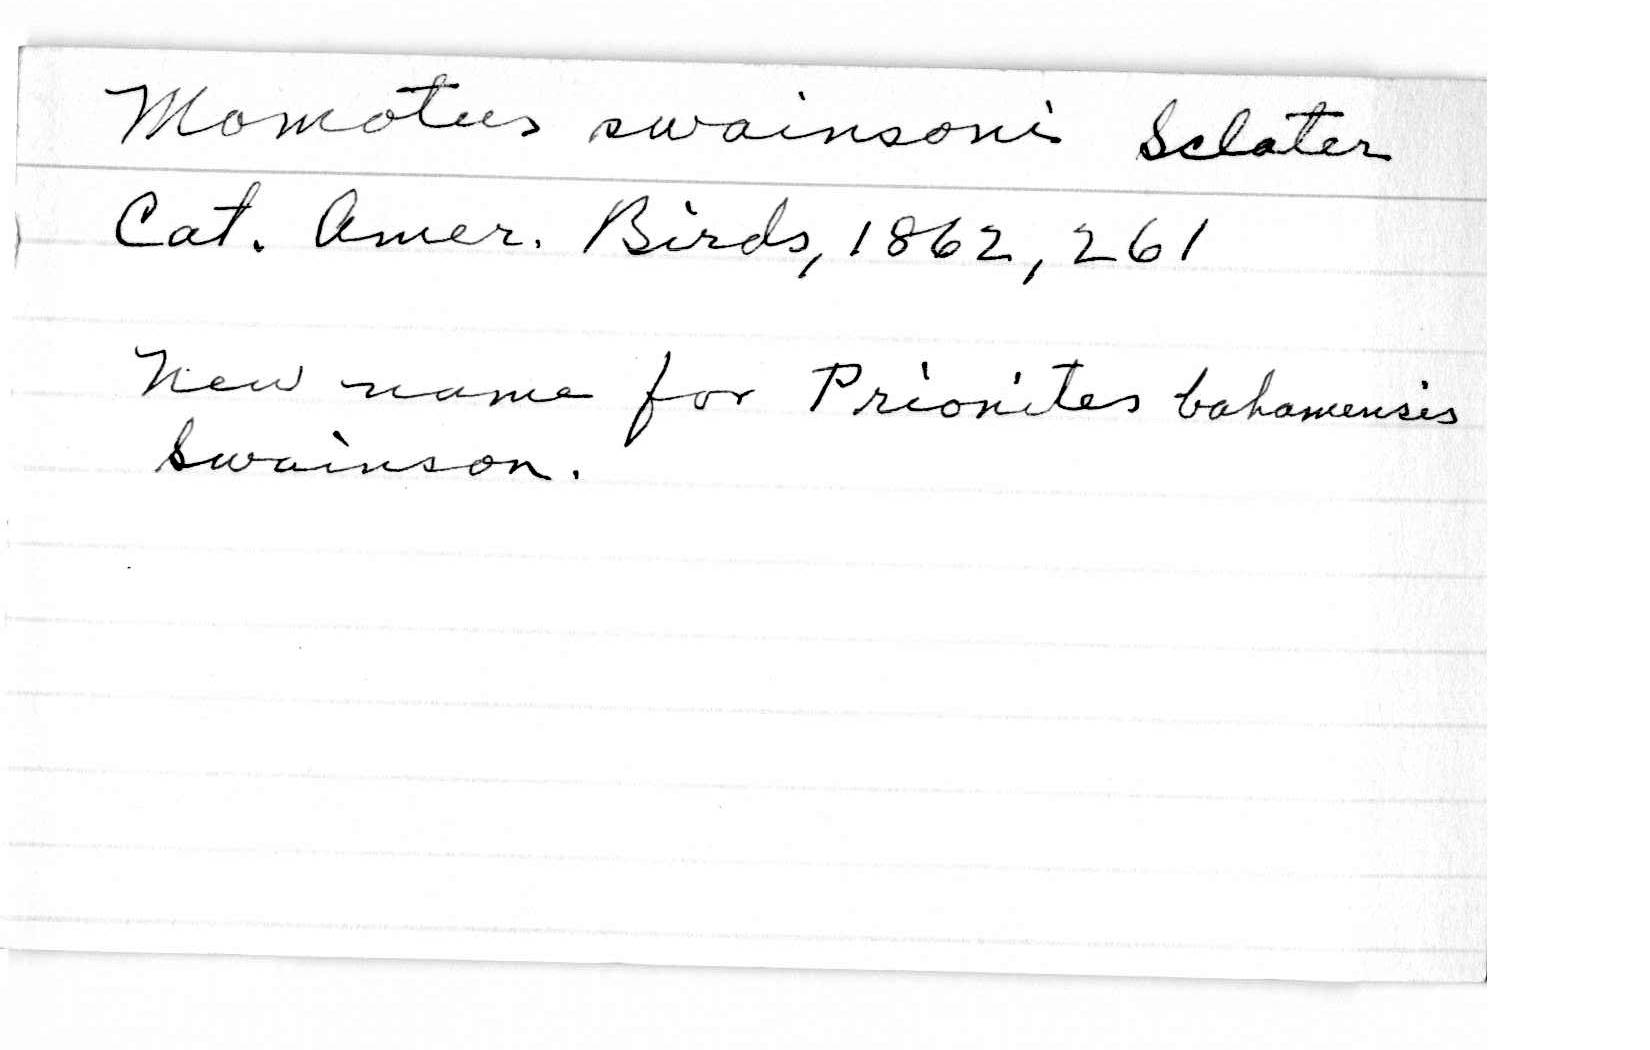 Momotus swainsoni Sclater
Cat. Amer. Birds, 1862, 261
New name for Prionites bahamensis
Swainson.